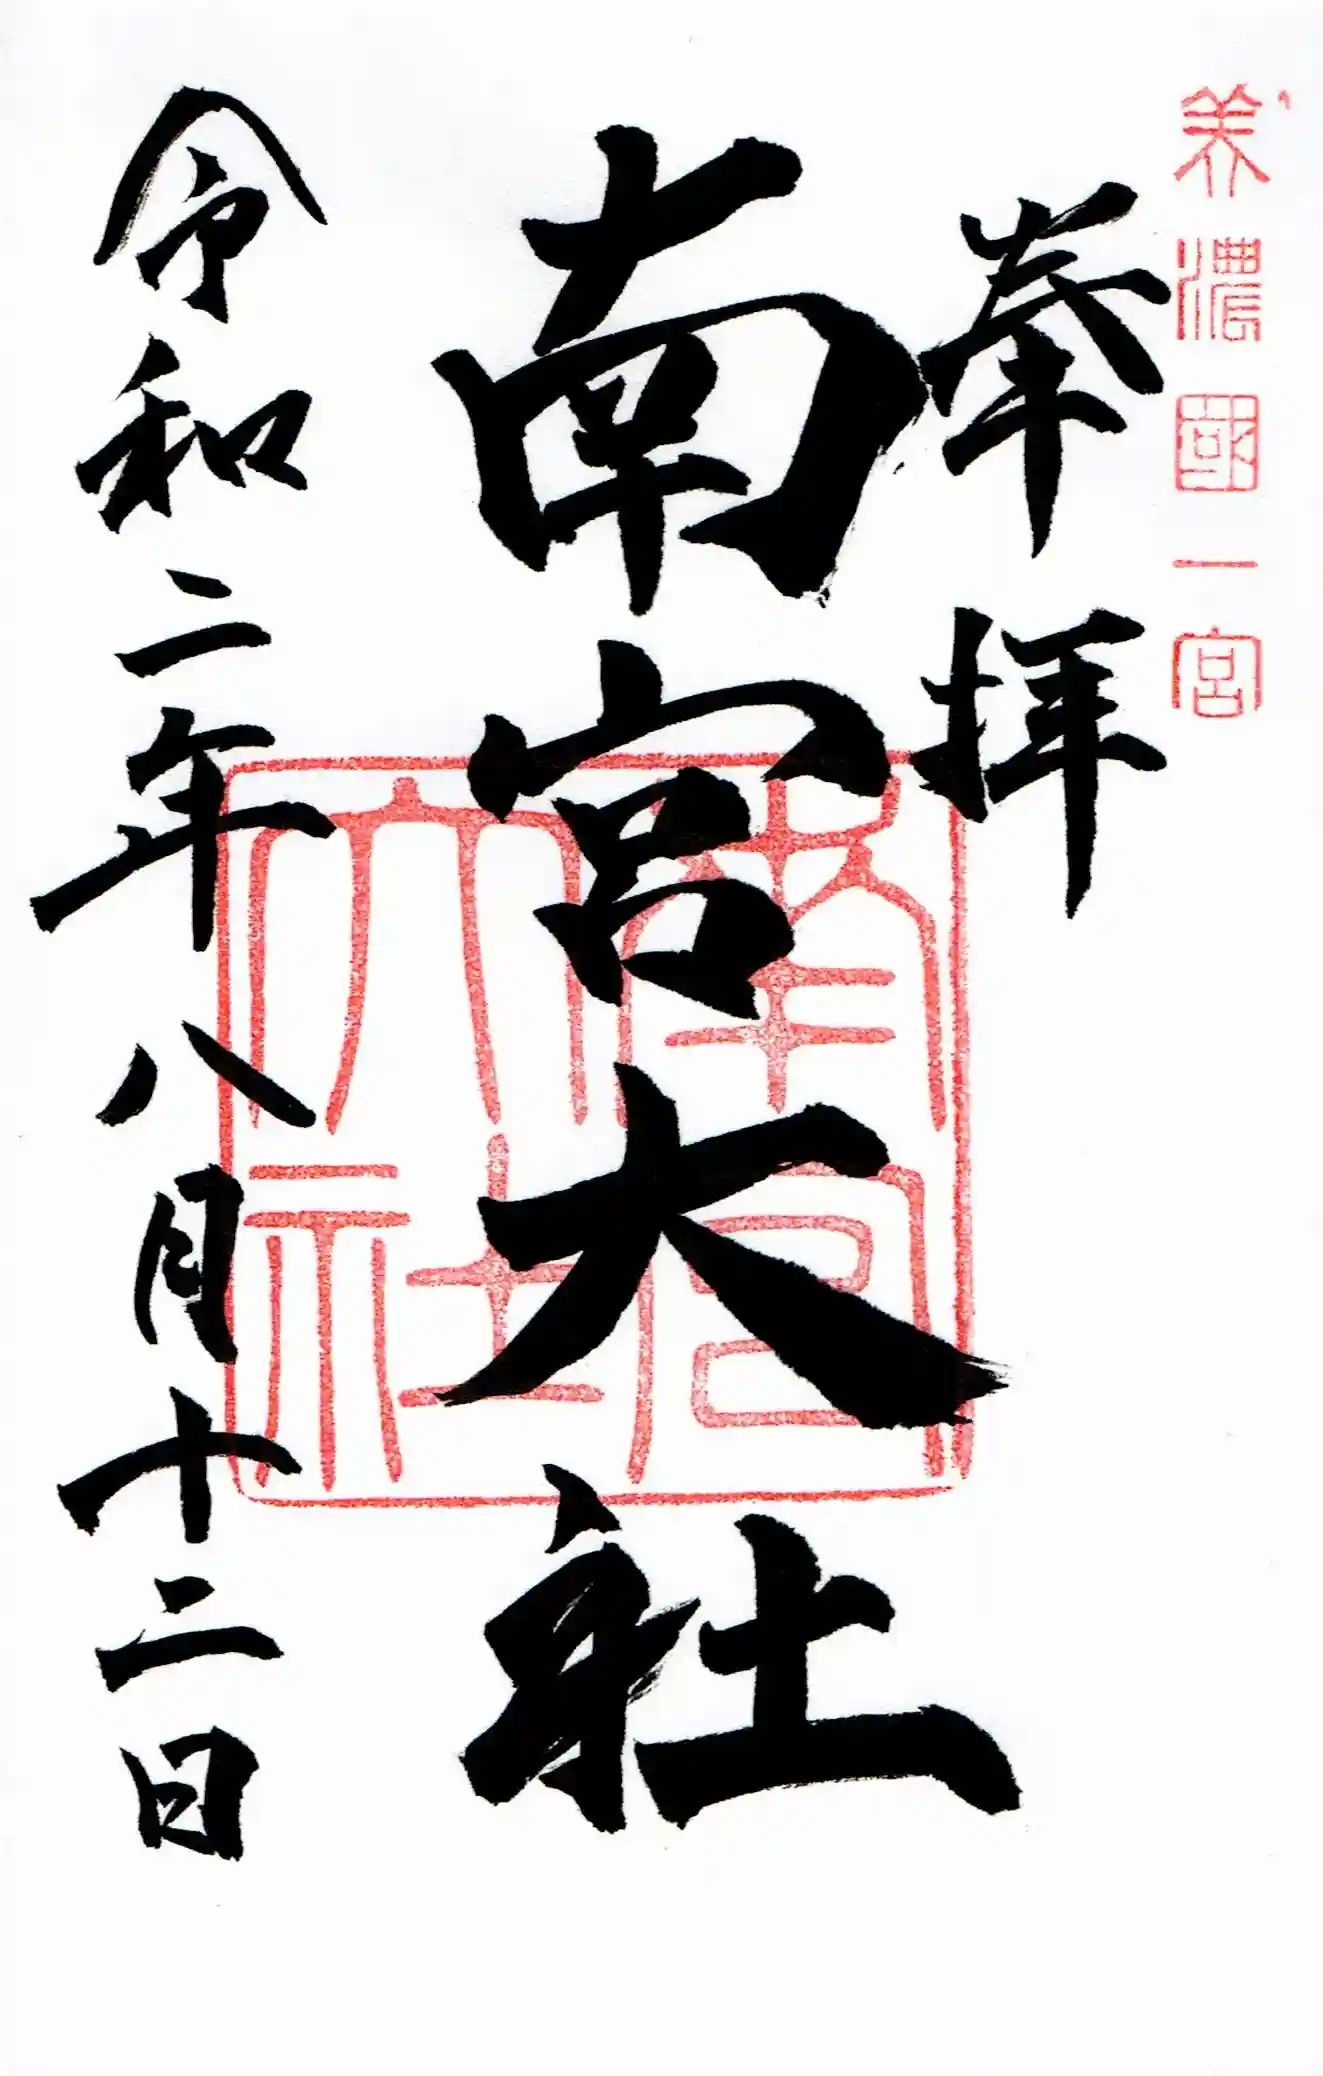 美濃國一宮
奉拝
南宮大社
南宮大社
令和二年八月十二日